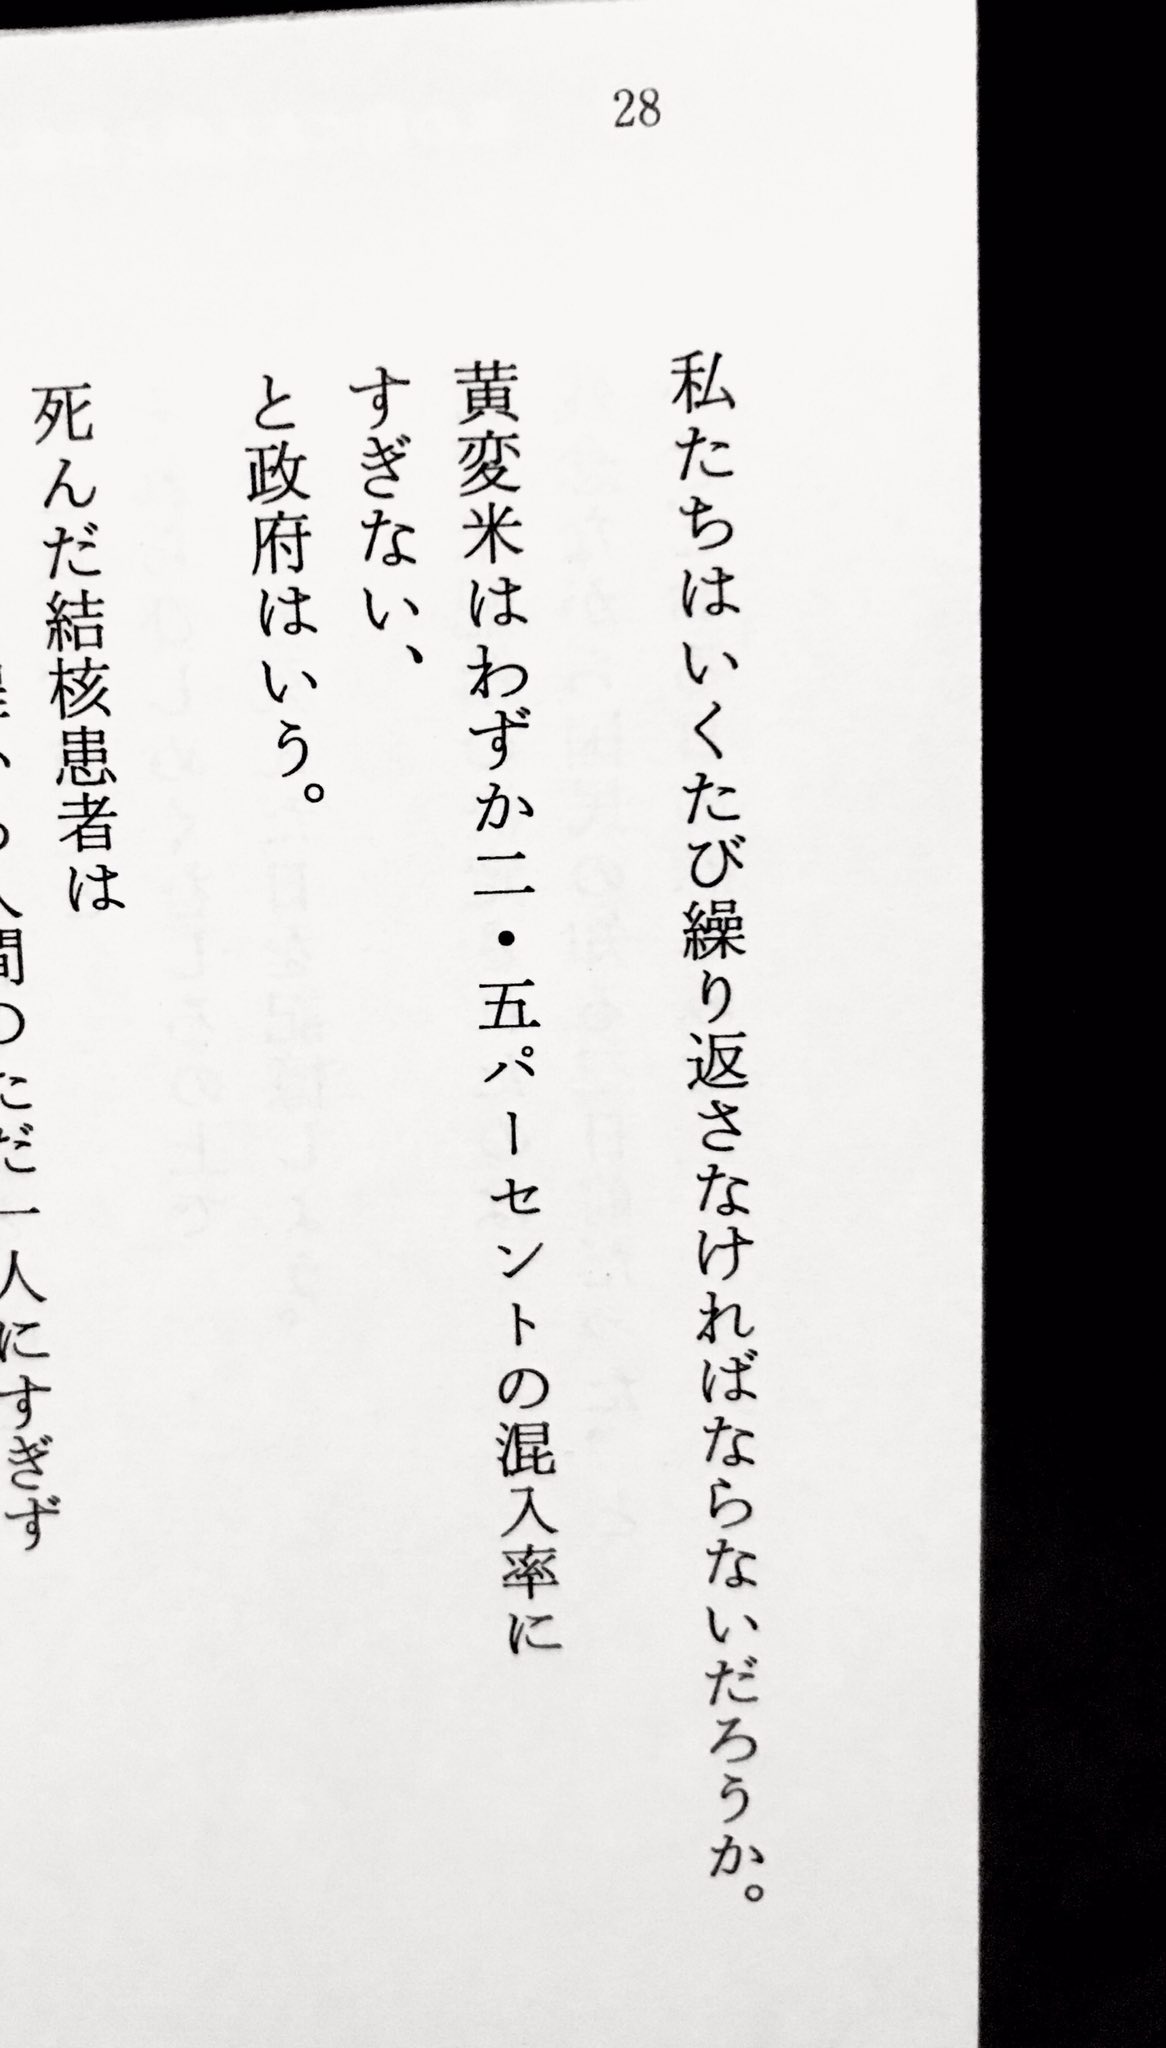 28
私たちはいくたび繰り返さなければならないだろうか。
黄変米はわずか二・五パーセントの混入率に
すぎない、
と政府はいう。
死んだ結核患者は
人間のただ一人にすぎず